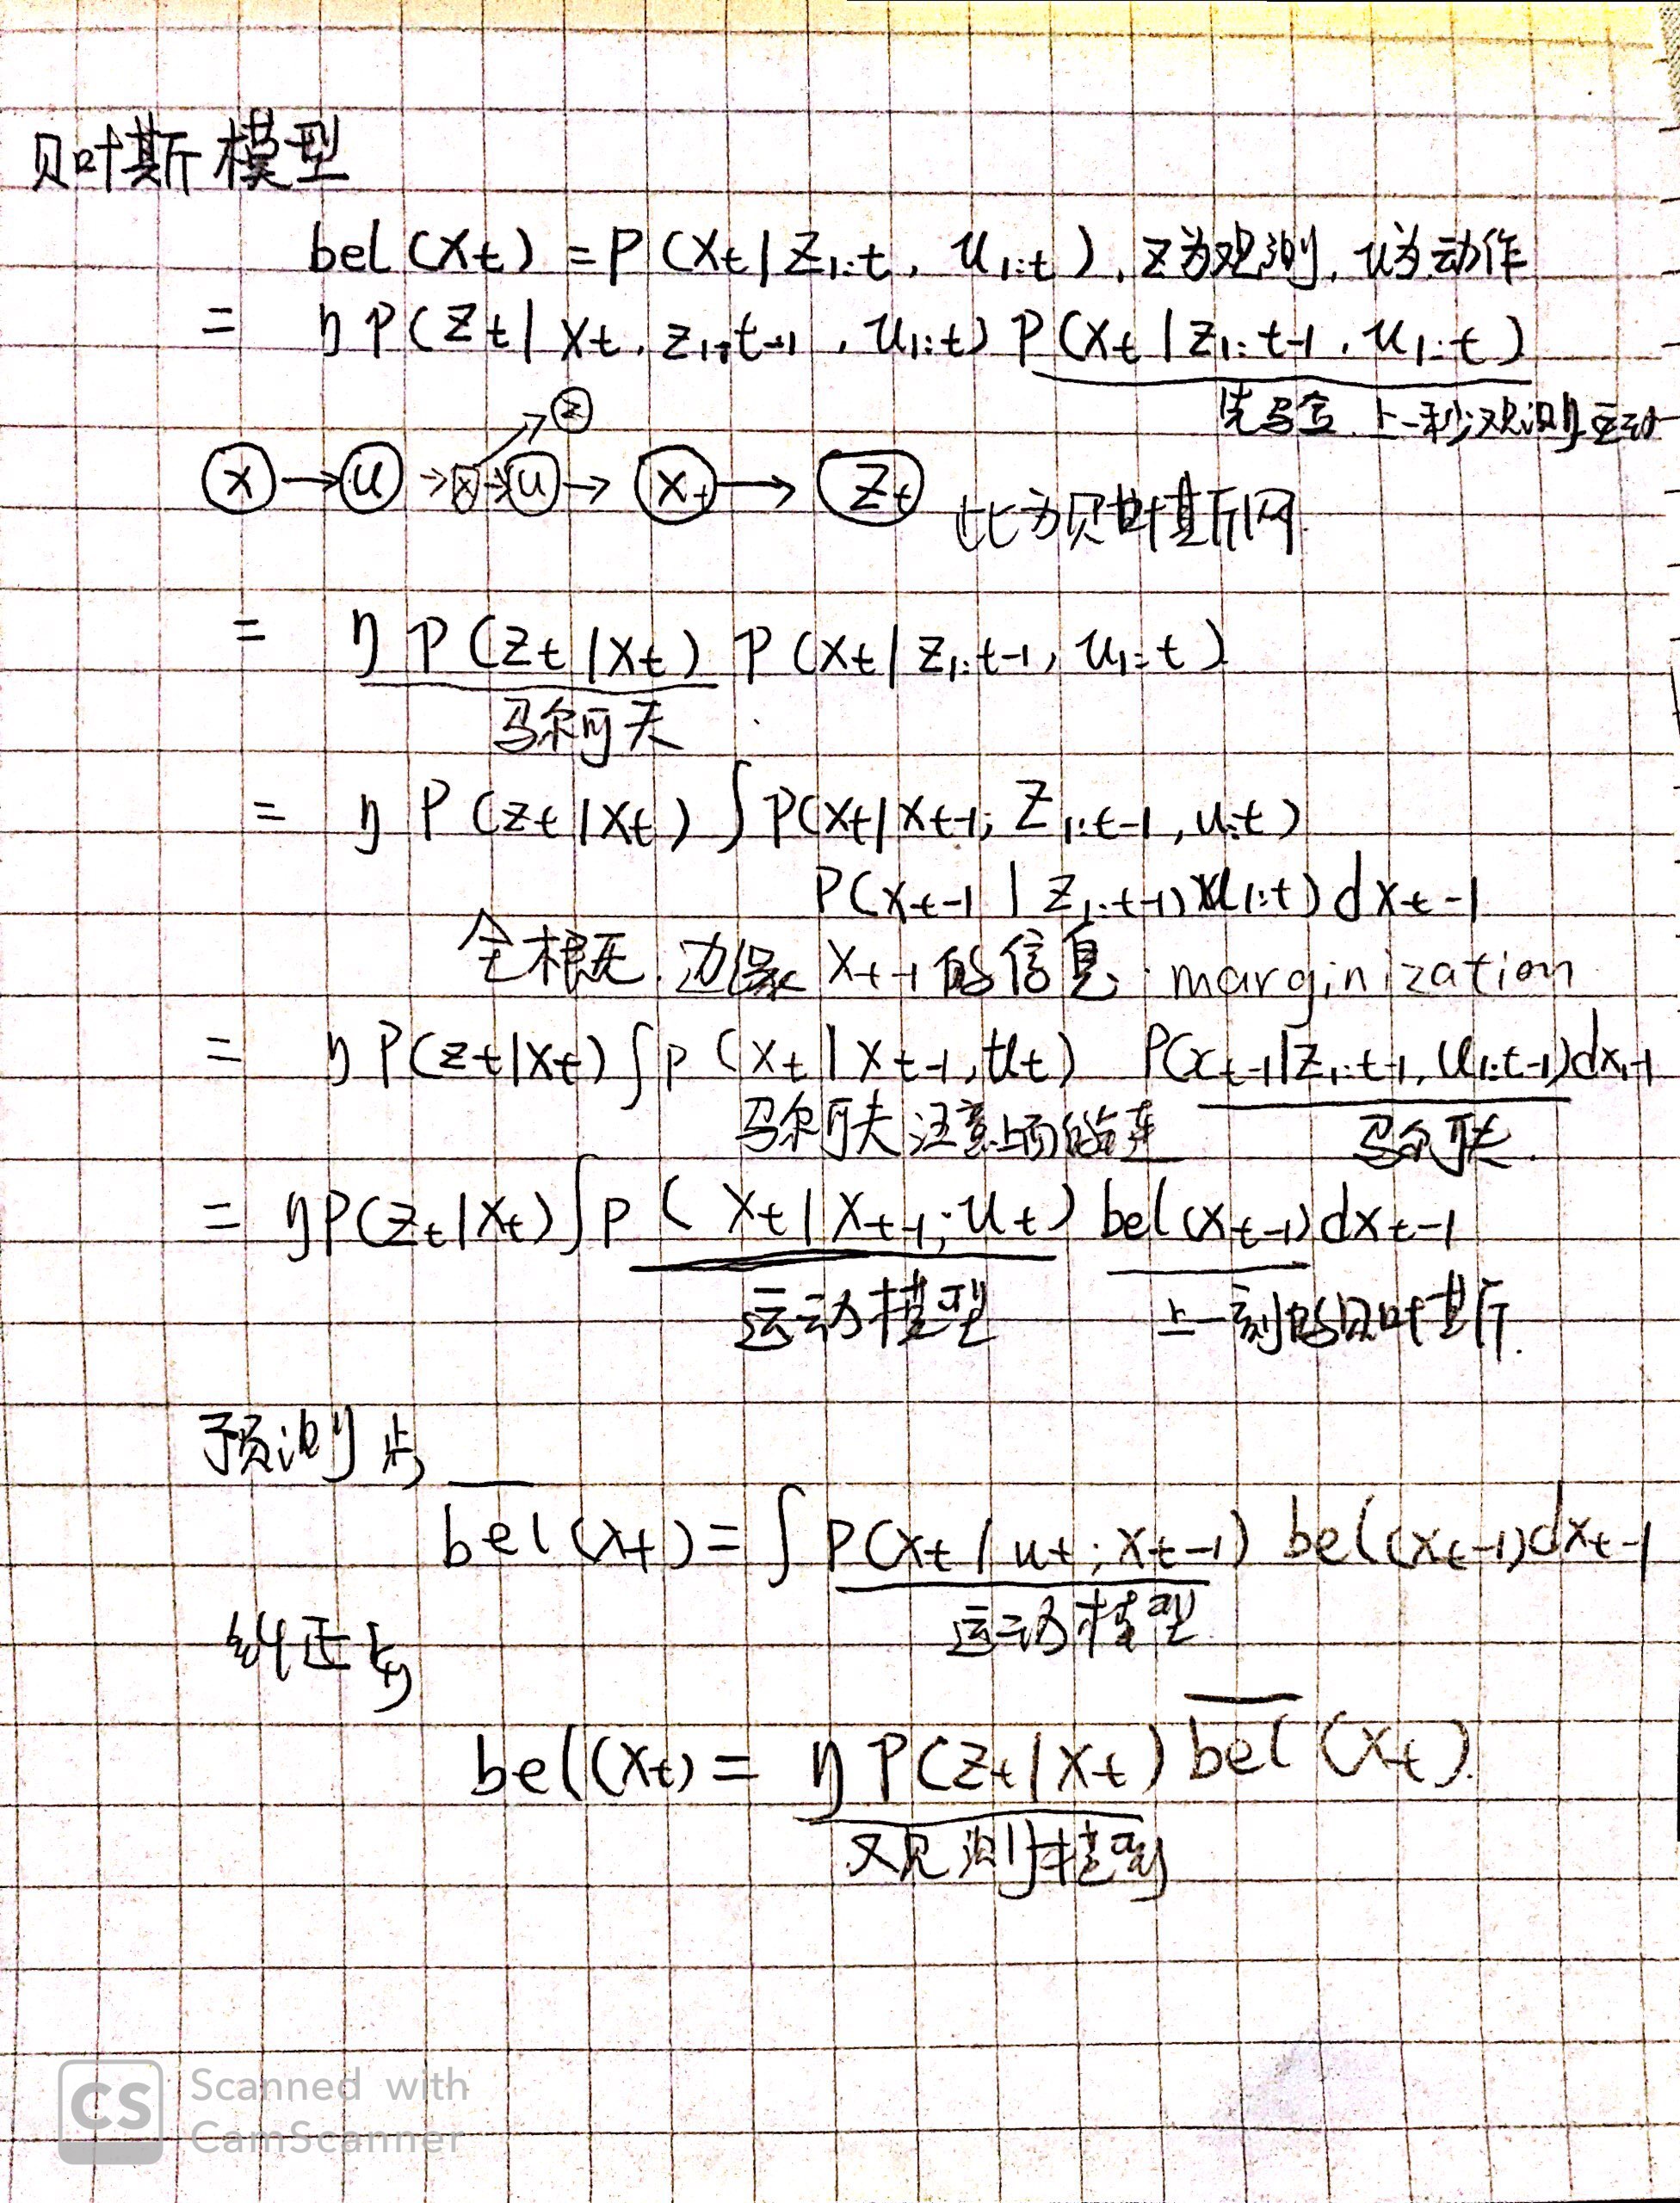 贝叶斯模型
bel(xt) = P(xt|z1:t, u1:t), z为观测, u为动作
= η P(zt|xt, z1:t-1, u1:t) P(xt|z1:t-1, u1:t)
先写全, 上一秒观测与运动
z
x → u → x → u → xt → zt 此为贝叶斯网
= η P(zt|xt) P(xt|z1:t-1, u1:t)
马尔可夫
= η P(zt|xt) ∫ P(xt|xt-1, z1:t-1, u1:t)
P(xt-1|z1:t-1, u1:t) dxt-1
全概率. 边缘 xt-1 的信息. marginization
= η P(zt|xt) ∫ P(xt|xt-1, ut) P(xt-1|z1:t-1, u1:t-1) dxt-1
马尔可夫 注意上面的 马尔可夫.
= η P(zt|xt) ∫ P(xt|xt-1, ut) bel(xt-1) dxt-1
运动模型 上一刻的贝叶斯.
预测步
b̅e̅l̅(xt) = ∫ P(xt|ut, xt-1) bel(xt-1) dxt-1
运动模型
纠正步
bel(xt) = η P(zt|xt) b̅e̅l̅(xt).
观测模型
CS
Scanned with
CamScanner